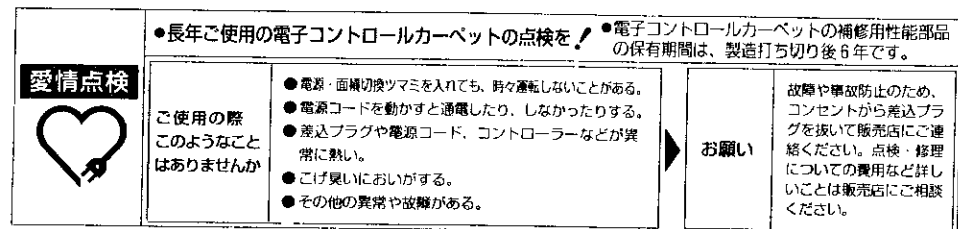 ●長年ご使用の電子コントロールカーペットの点検を!
●電子コントロールカーペットの補修用性能部品
の保有期間は、製造打ち切り後6年です。
愛情点検
ご使用の際
このようなこと
はありませんか
●電源・面積切換ツマミを入れても、時々運転しないことがある。
●電源コードを動かすと通電したり、しなかったりする。
●差込プラグや電源コード、コントローラーなどが異
常に熱い。
●こげ臭いにおいがする。
●その他の異常や故障がある。
お願い
故障や事故防止のため、
コンセントから差込プラ
グを抜いて販売店にご連
絡ください。点検・修理
についての費用など詳し
いことは販売店にご相談
ください。